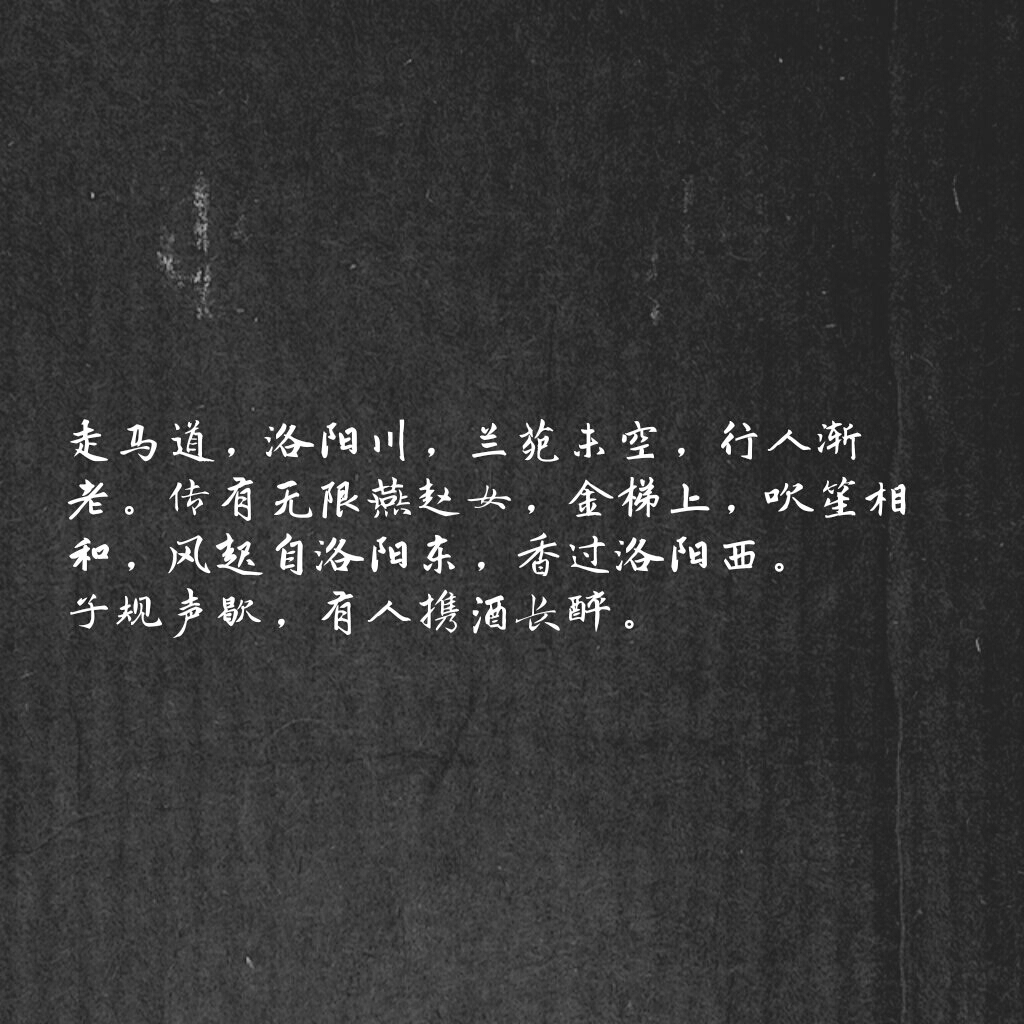 走马道，洛阳川，兰苑未空，行人渐
老。传有无限燕赵女，金梯上，吹笙相
和，风起自洛阳东，香过洛阳西。
子规声歇，有人携酒长醉。